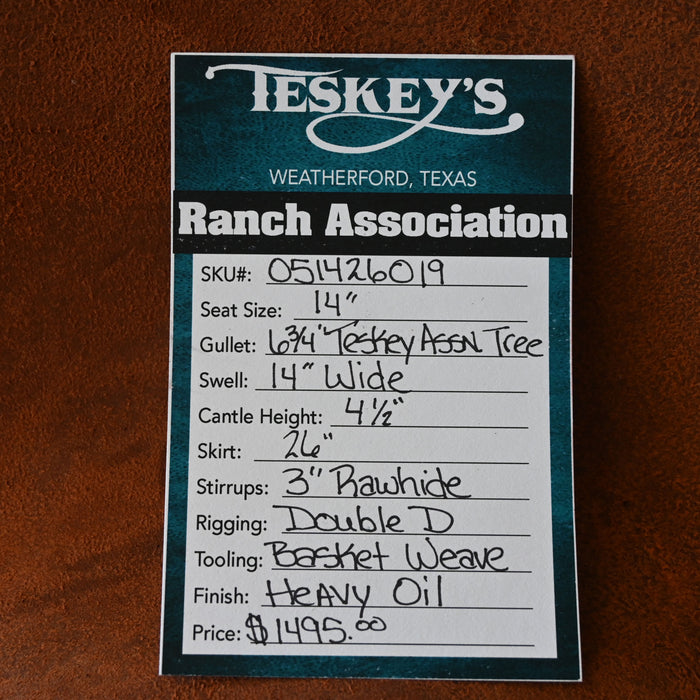 TESKEY'S
WEATHERFORD, TEXAS
Ranch Association
SKU#: 051426019
Seat Size: 14"
Gullet: 6 3/4" Teskey ASSN. Tree
Swell: 14" Wide
Cantle Height: 4 1/2"
Skirt: 26"
Stirrups: 3" Rawhide
Rigging: Double D
Tooling: Basket Weave
Finish: HEAVY Oil
Price: $1495.00